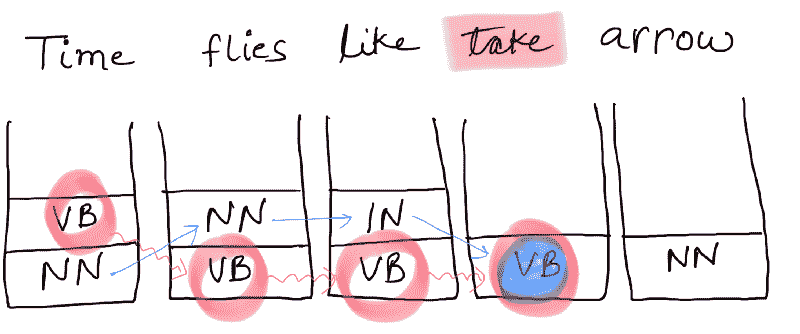 Time flies like take arrow
VB NN IN
NN VB VB VB NN